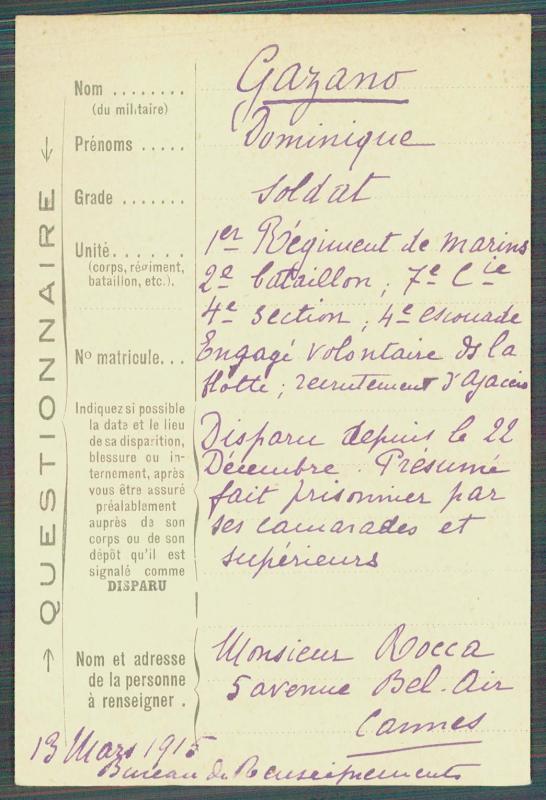 ← QUESTIONNAIRE →
Nom ........ Gazano
(du militaire)
Prénoms ..... Dominique
Grade ....... Soldat
Unité...... 1er Régiment de marins
(corps, régiment,
bataillon, etc.).
2e bataillon ; 7e Cie
4e section ; 4e escouade
No matricule... Engagé volontaire ds la
flotte ; recrutement d'ajaccio
Indiquez si possible
la date et le lieu
de sa disparition,
blessure ou in-
ternement, après
vous être assuré
préalablement
auprès de son
corps ou de son
dépôt qu'il est
signalé comme
DISPARU
Disparu depuis le 22
Décembre. Présumé
fait prisonnier par
ses camarades et
supérieurs
Nom et adresse
de la personne
à renseigner .
Monsieur Rocca
5 avenue Bel-Air
Cannes
13 Mars 1915
Bureau de Renseignements